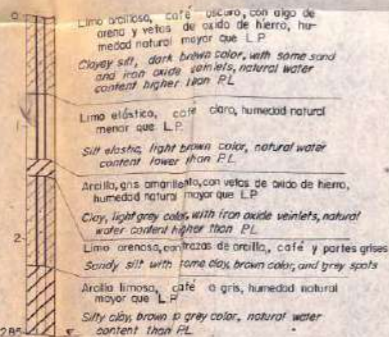 0
Limo arcilloso, café oscuro, con algo de
arena y vetas de oxido de hierro, hu-
medad natural mayor que L.P.
Clayey silt, dark brown color, with some sand
and iron oxide veinlets, natural water
content higher than P.L
1
Limo elástico, café claro, humedad natural
menor que L.P.
Silt elastic, light brown color, natural water
content lower than P.L
Arcilla, gris amarillento, con vetas de óxido de hierro,
humedad natural mayor que L.P.
Clay, light grey color, with iron oxide veinlets, natural
water content higher than P.L
2
Limo arenoso, con trazas de arcilla, café y partes grises
Sandy silt with some clay, brown color, and grey spots
Arcilla limosa, café a gris, humedad natural
mayor que L.P.
Silty clay, brown to grey color, natural water
content than P.L
2.85